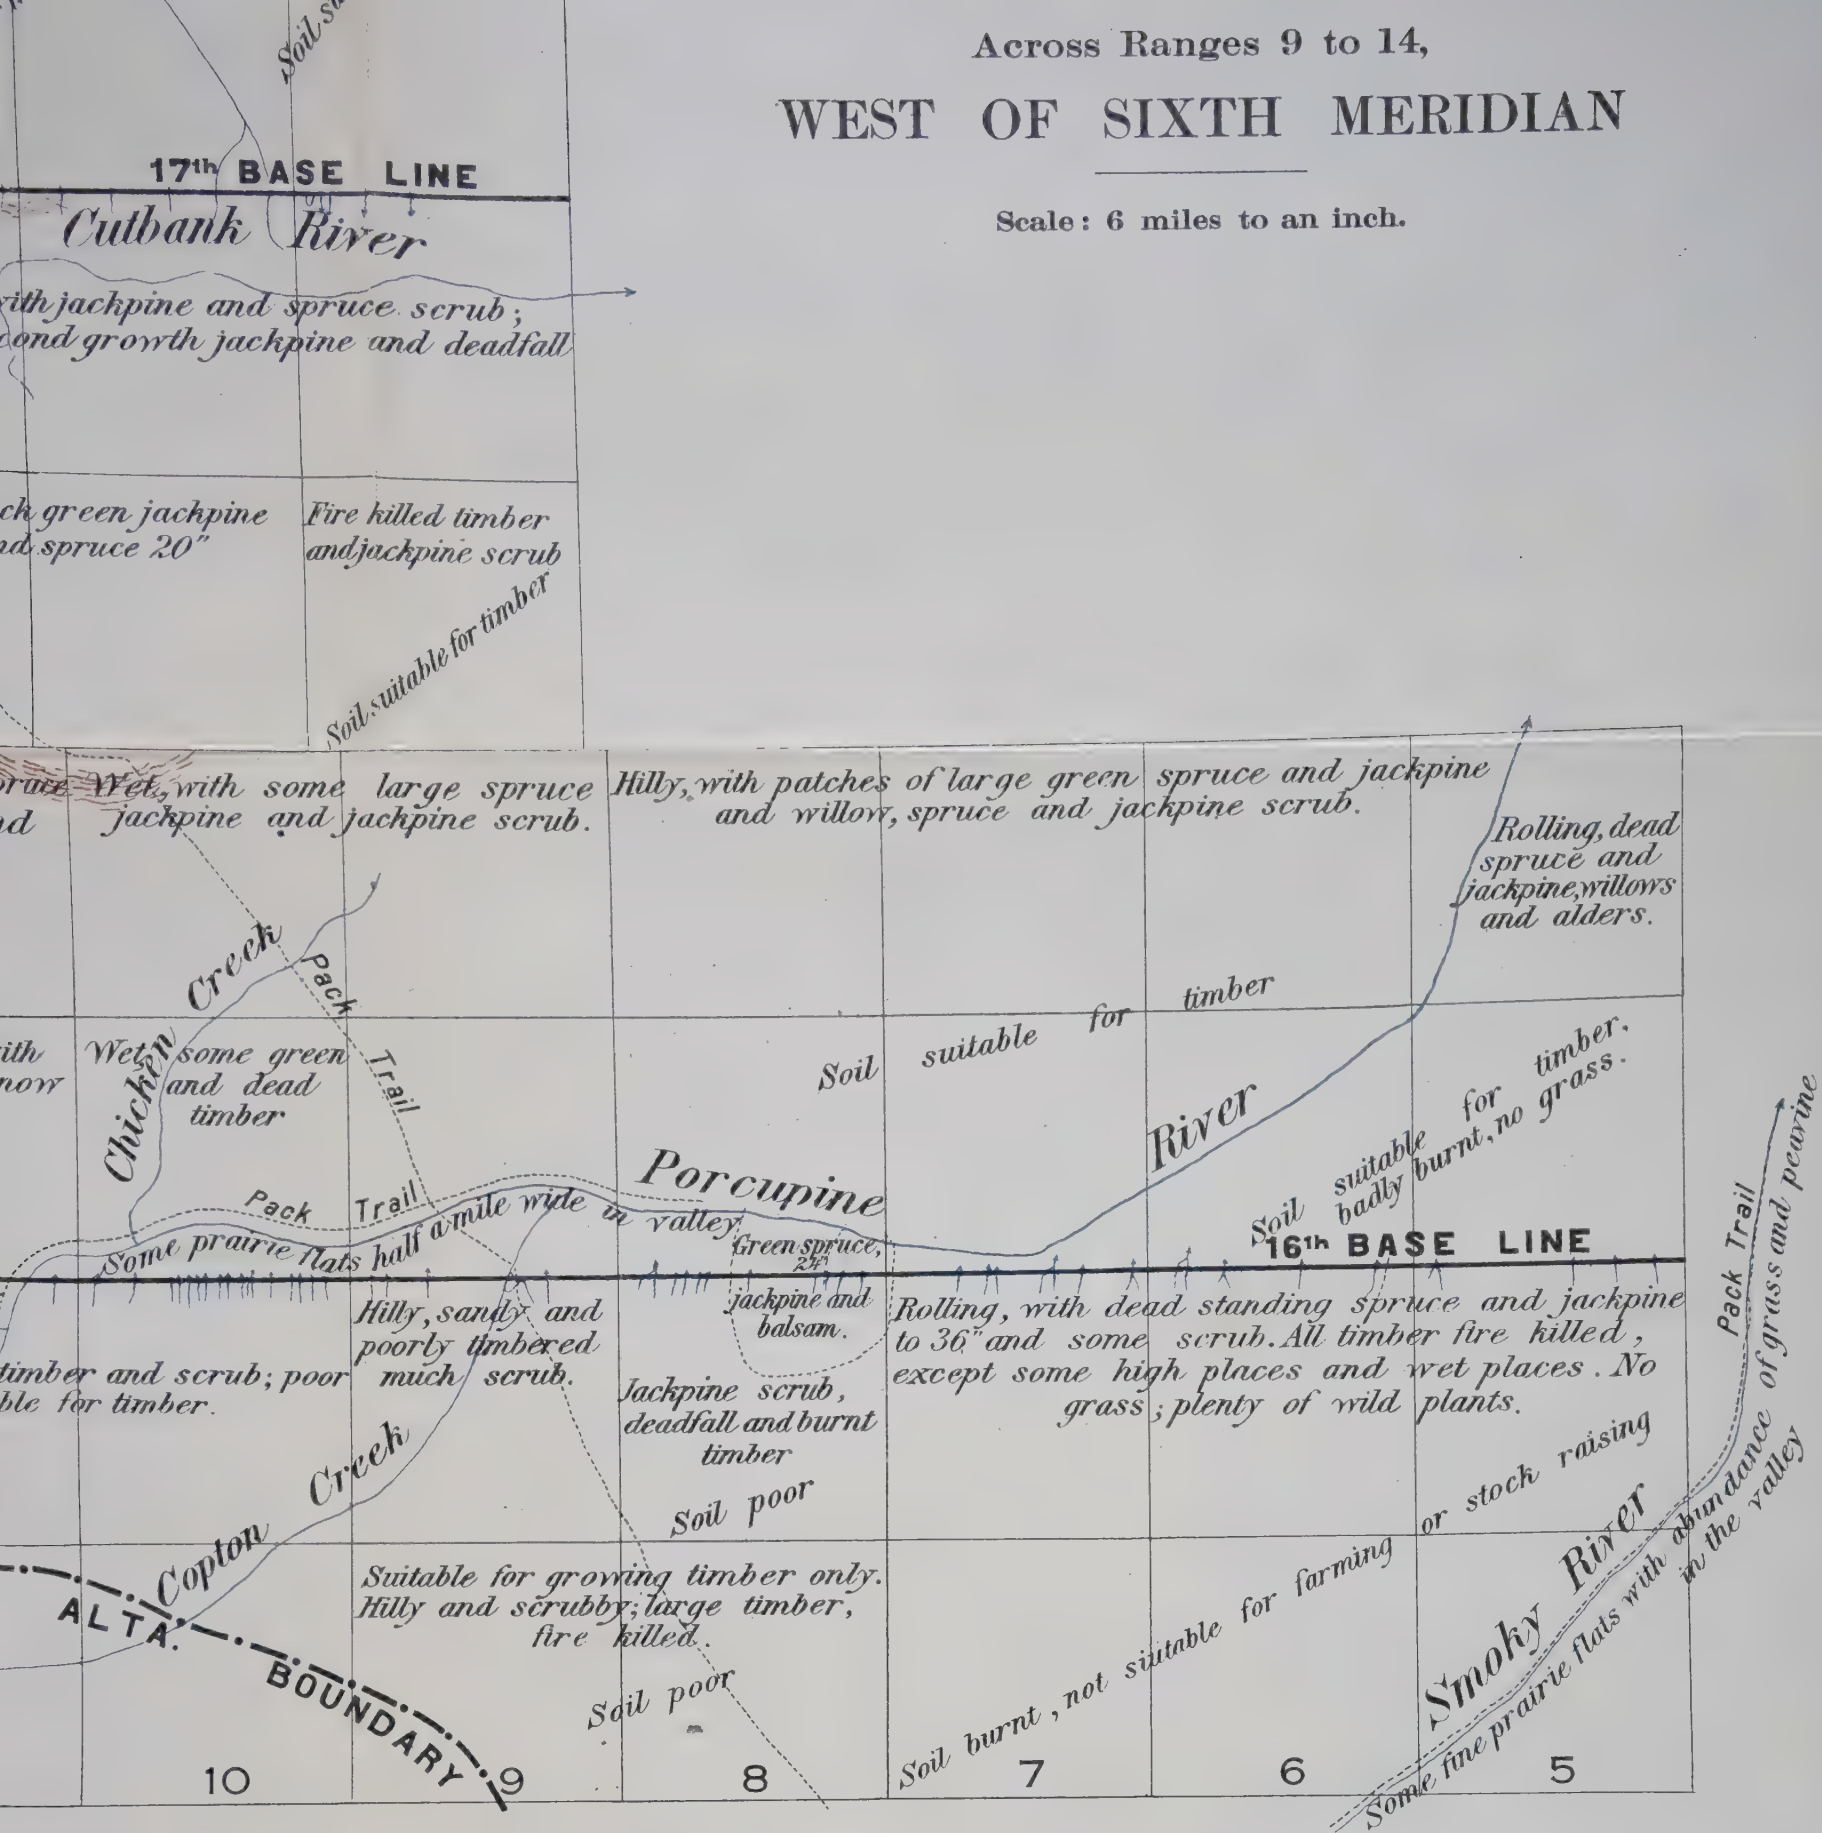 Across Ranges 9 to 14,
WEST OF SIXTH MERIDIAN
Scale: 6 miles to an inch.
17th BASE LINE
Cutbank River
with jackpine and spruce scrub;
growth jackpine and deadfall
green jackpine
spruce 20"
Fire killed timber
and jackpine scrub
Soil suitable for timber
Wet, with some large spruce
jackpine and jackpine scrub.
Hilly, with patches of large green spruce and jackpine
and willow, spruce and jackpine scrub.
Rolling, dead
spruce and
jackpine, willows
and alders.
Chicken Creek
Pack Trail
Wet, some green
and dead
timber
Soil suitable for timber
Pack Trail
Porcupine River
Some prairie flats half a mile wide in valley
Green spruce,
24"
jackpine and
balsam.
Soil suitable for timber.
badly burnt, no grass.
16th BASE LINE
Hilly, sandy and
poorly timbered
much scrub.
timber and scrub; poor
for timber.
Rolling, with dead standing spruce and jackpine
to 36" and some scrub. All timber fire killed,
except some high places and wet places. No
grass; plenty of wild plants.
Jackpine scrub,
deadfall and burnt
timber
Soil poor
Copton Creek
Suitable for growing timber only.
Hilly and scrubby; large timber,
fire killed.
Soil poor
Soil burnt, not siutable for farming or stock raising
Pack Trail
Smoky River
Some fine prairie flats with abundance of grass and peavine
in the valley
ALTA.
BOUNDARY
10 9 8 7 6 5